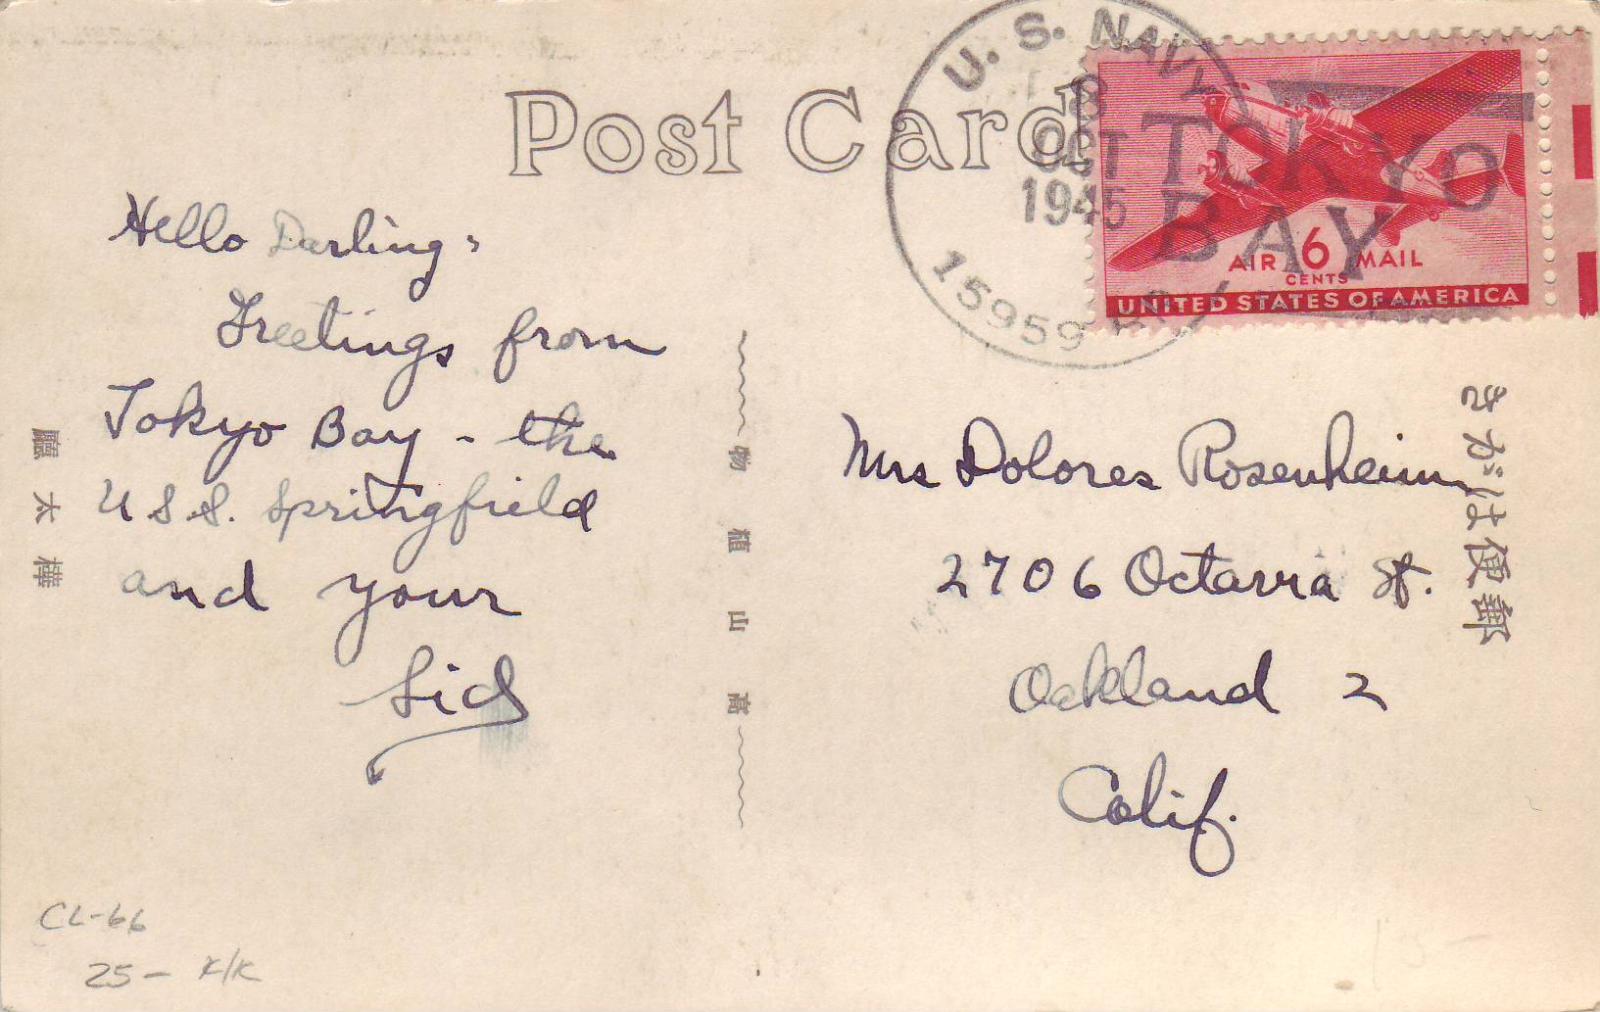 Post Card
U. S. NAVY
8
OCT
1945
15959
TOKYO
BAY
AIR 6 MAIL
CENTS
UNITED STATES OF AMERICA
Hello Darling,
Greetings from
Tokyo Bay - the
U.S.S. Springfield
and your
Sid
Mrs Dolores Rosenheim
2706 Octavia St.
Oakland 2
Calif.
きがは便郵
樺太廳
高山植物
CL-66
25- K/K